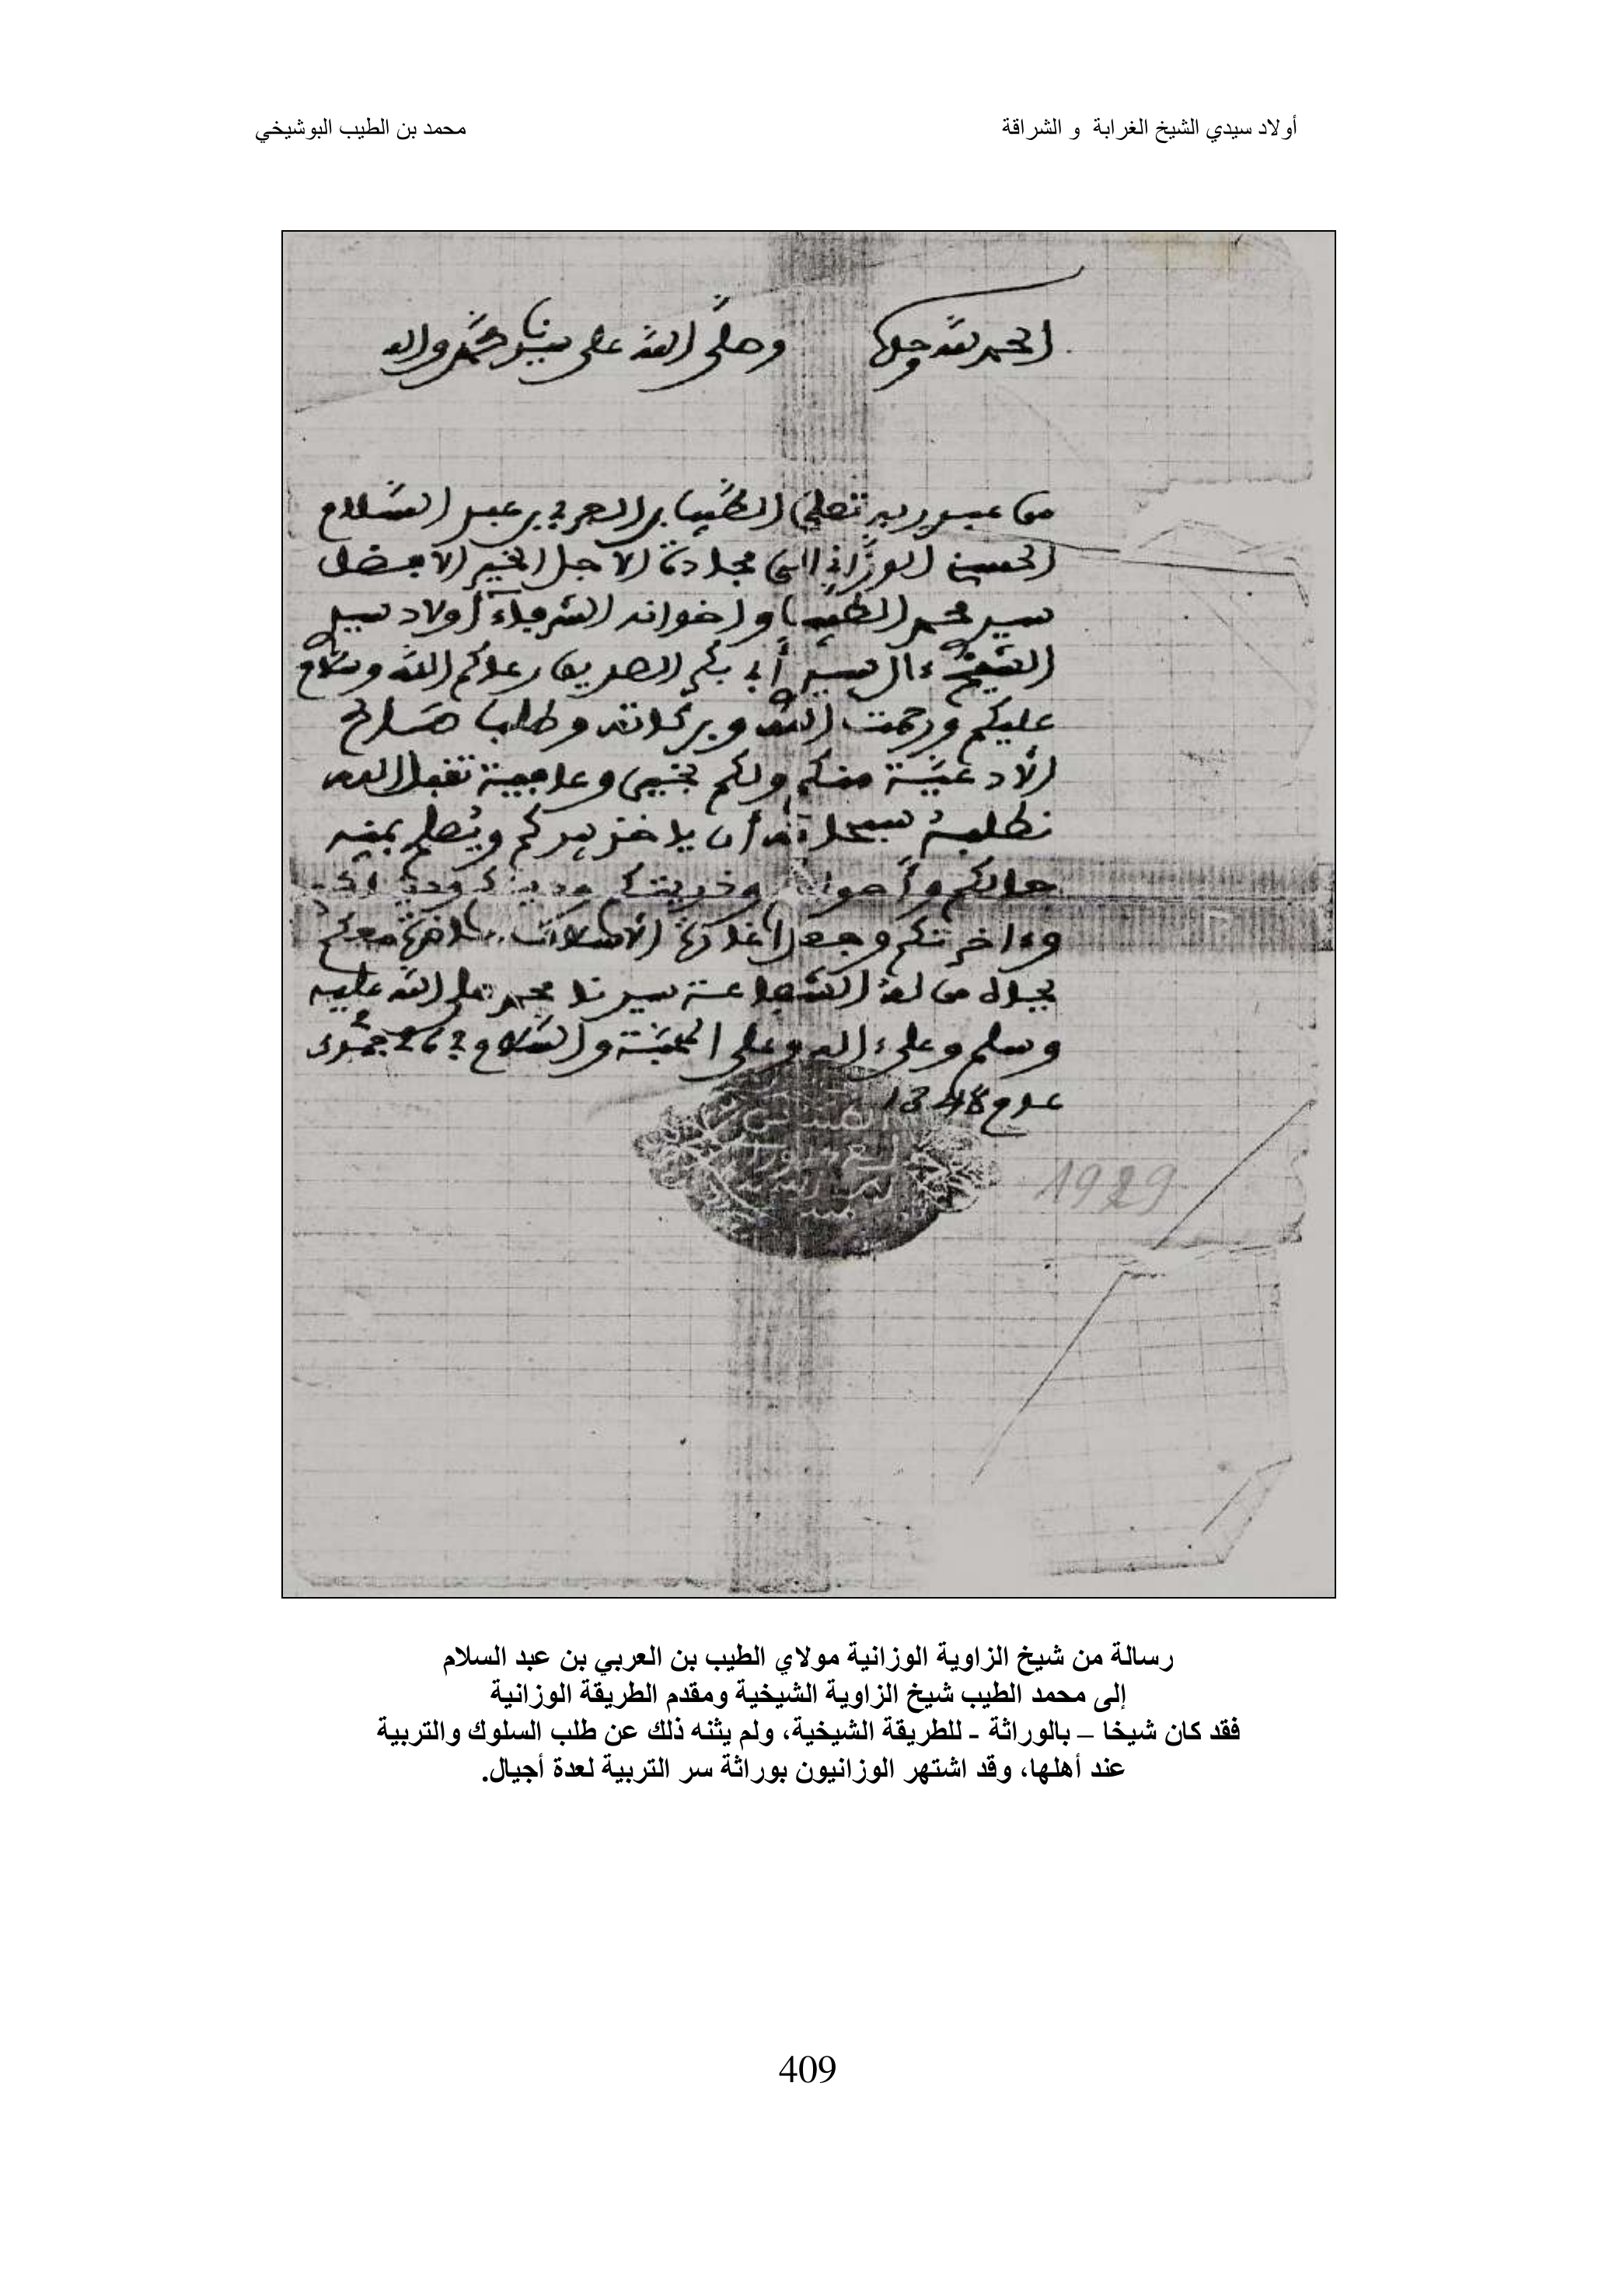 أولاد سيدي الشيخ الغرابة و الشراقة
محمد بن الطيب البوشيخي
الحمد لله وحده وصلى الله على سيدنا محمد وآله
من عبد ربه تعلى الطيب بن العربي بن عبد السلام
الحسني الوزاني الى الاجل الخير الافضل
سيد محمد الطيب واخوانه الشرفاء أولاد سيد
الشيخ ءال السيد أبي بكر الصديق رعاكم الله وسلام
عليكم ورحمت الله وبركاته وطلب صالح
الأدعية منكم ولكم بخير وعافية تقبل الله
نطلبه سبحانه أن ياخذ بيدكم ويصلح بمنه
حالكم وذريتكم
وءاخرتكم وجعل معكم
بجاه من له الشفاعة سيدنا محمد صلى الله عليه
وسلم وعلى ءاله وعلى المحبة والسلام في 26 جمد
عام 1348
1929
رسالة من شيخ الزاوية الوزانية مولاي الطيب بن العربي بن عبد السلام
إلى محمد الطيب شيخ الزاوية الشيخية ومقدم الطريقة الوزانية
فقد كان شيخا – بالوراثة - للطريقة الشيخية، ولم يثنه ذلك عن طلب السلوك والتربية
عند أهلها، وقد اشتهر الوزانيون بوراثة سر التربية لعدة أجيال.
409